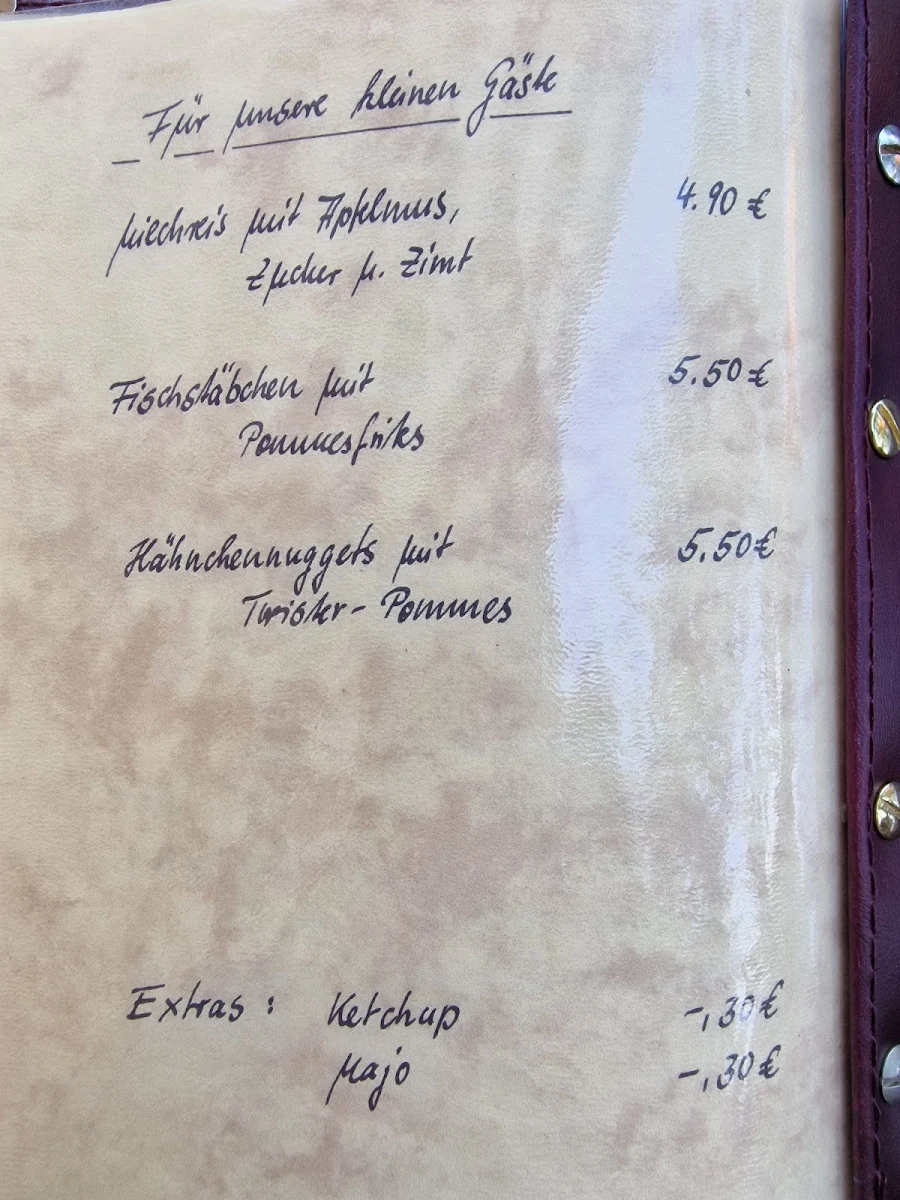 Für unsere kleinen Gäste
Milchreis mit Apfelmus, 4.90 €
Zucker u. Zimt
Fischstäbchen mit 5.50 €
Pommesfrites
Hähnchennuggets mit 5.50 €
Twister-Pommes
Extras: Ketchup -,30 €
Majo -,30 €